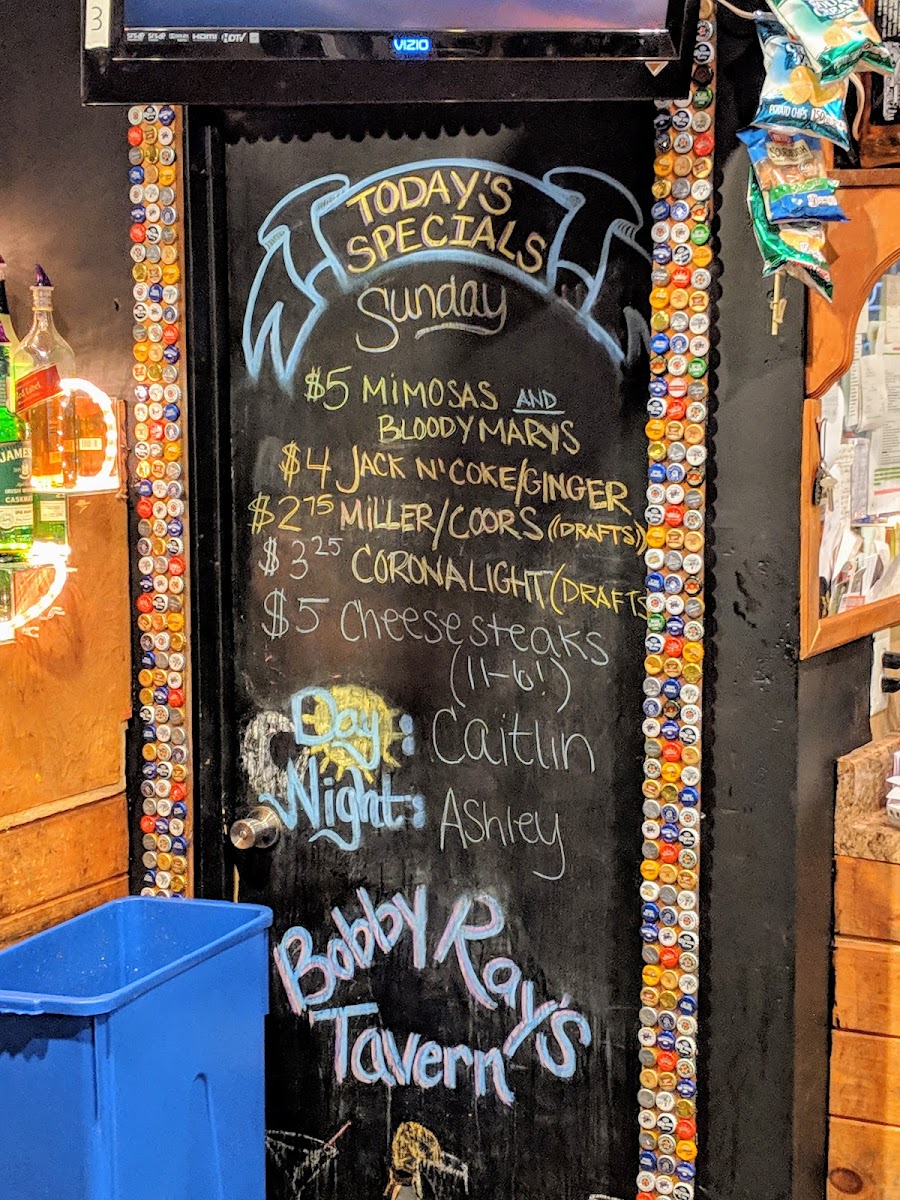 3
HDMI HDTV
VIZIO
TODAY'S
SPECIALS
Sunday
$5 MIMOSAS AND
BLOODY MARYS
$4 JACK N' COKE/GINGER
$2 75 MILLER/COORS ((DRAFTS))
$3 25 CORONA LIGHT (DRAFTS
$5 Cheesesteaks
(11-6!)
Day: Caitlin
Night: Ashley
Bobby Ray's
Tavern
POTATO CHIPS
Red Label
JAMES
IRISH
CASKM